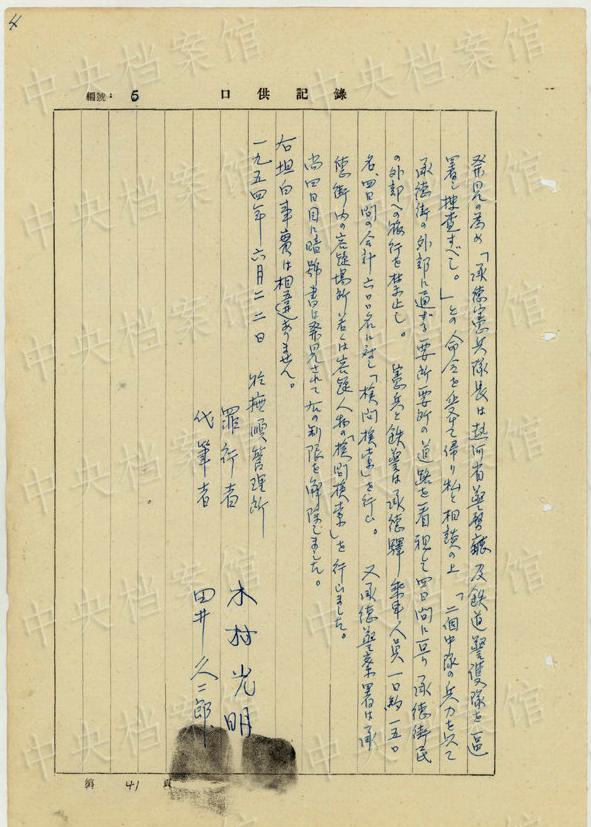 4
編號：5
口供記錄
発見の為め「承徳憲兵隊長は熱河省警務廳及鉄道警護隊を區
署し捜査すべし。」との命令を受けて帰り私と相談の上「二個中隊の兵力を以て
承徳街の外部に通ずる要所要所の道路を看視し四日間に亘り承徳街民
の外部への旅行を禁止し。憲兵と鉄警は承徳驛乗車人員一日約一五〇
名、四日間の合計六〇〇名に対し「検問検索」を行ひ。又承徳警察署は承
徳街内の容疑場所若くは容疑人物の「検問検索」を行ひました。
尚四日目に暗號書は発見されて右の制限を解除しました。
右坦白事實は相違ありません。
一九五四年六月二二日 於撫順管理所
罪行者 木村光明
代筆者 田井久二郎
第 41 頁
中央档案馆